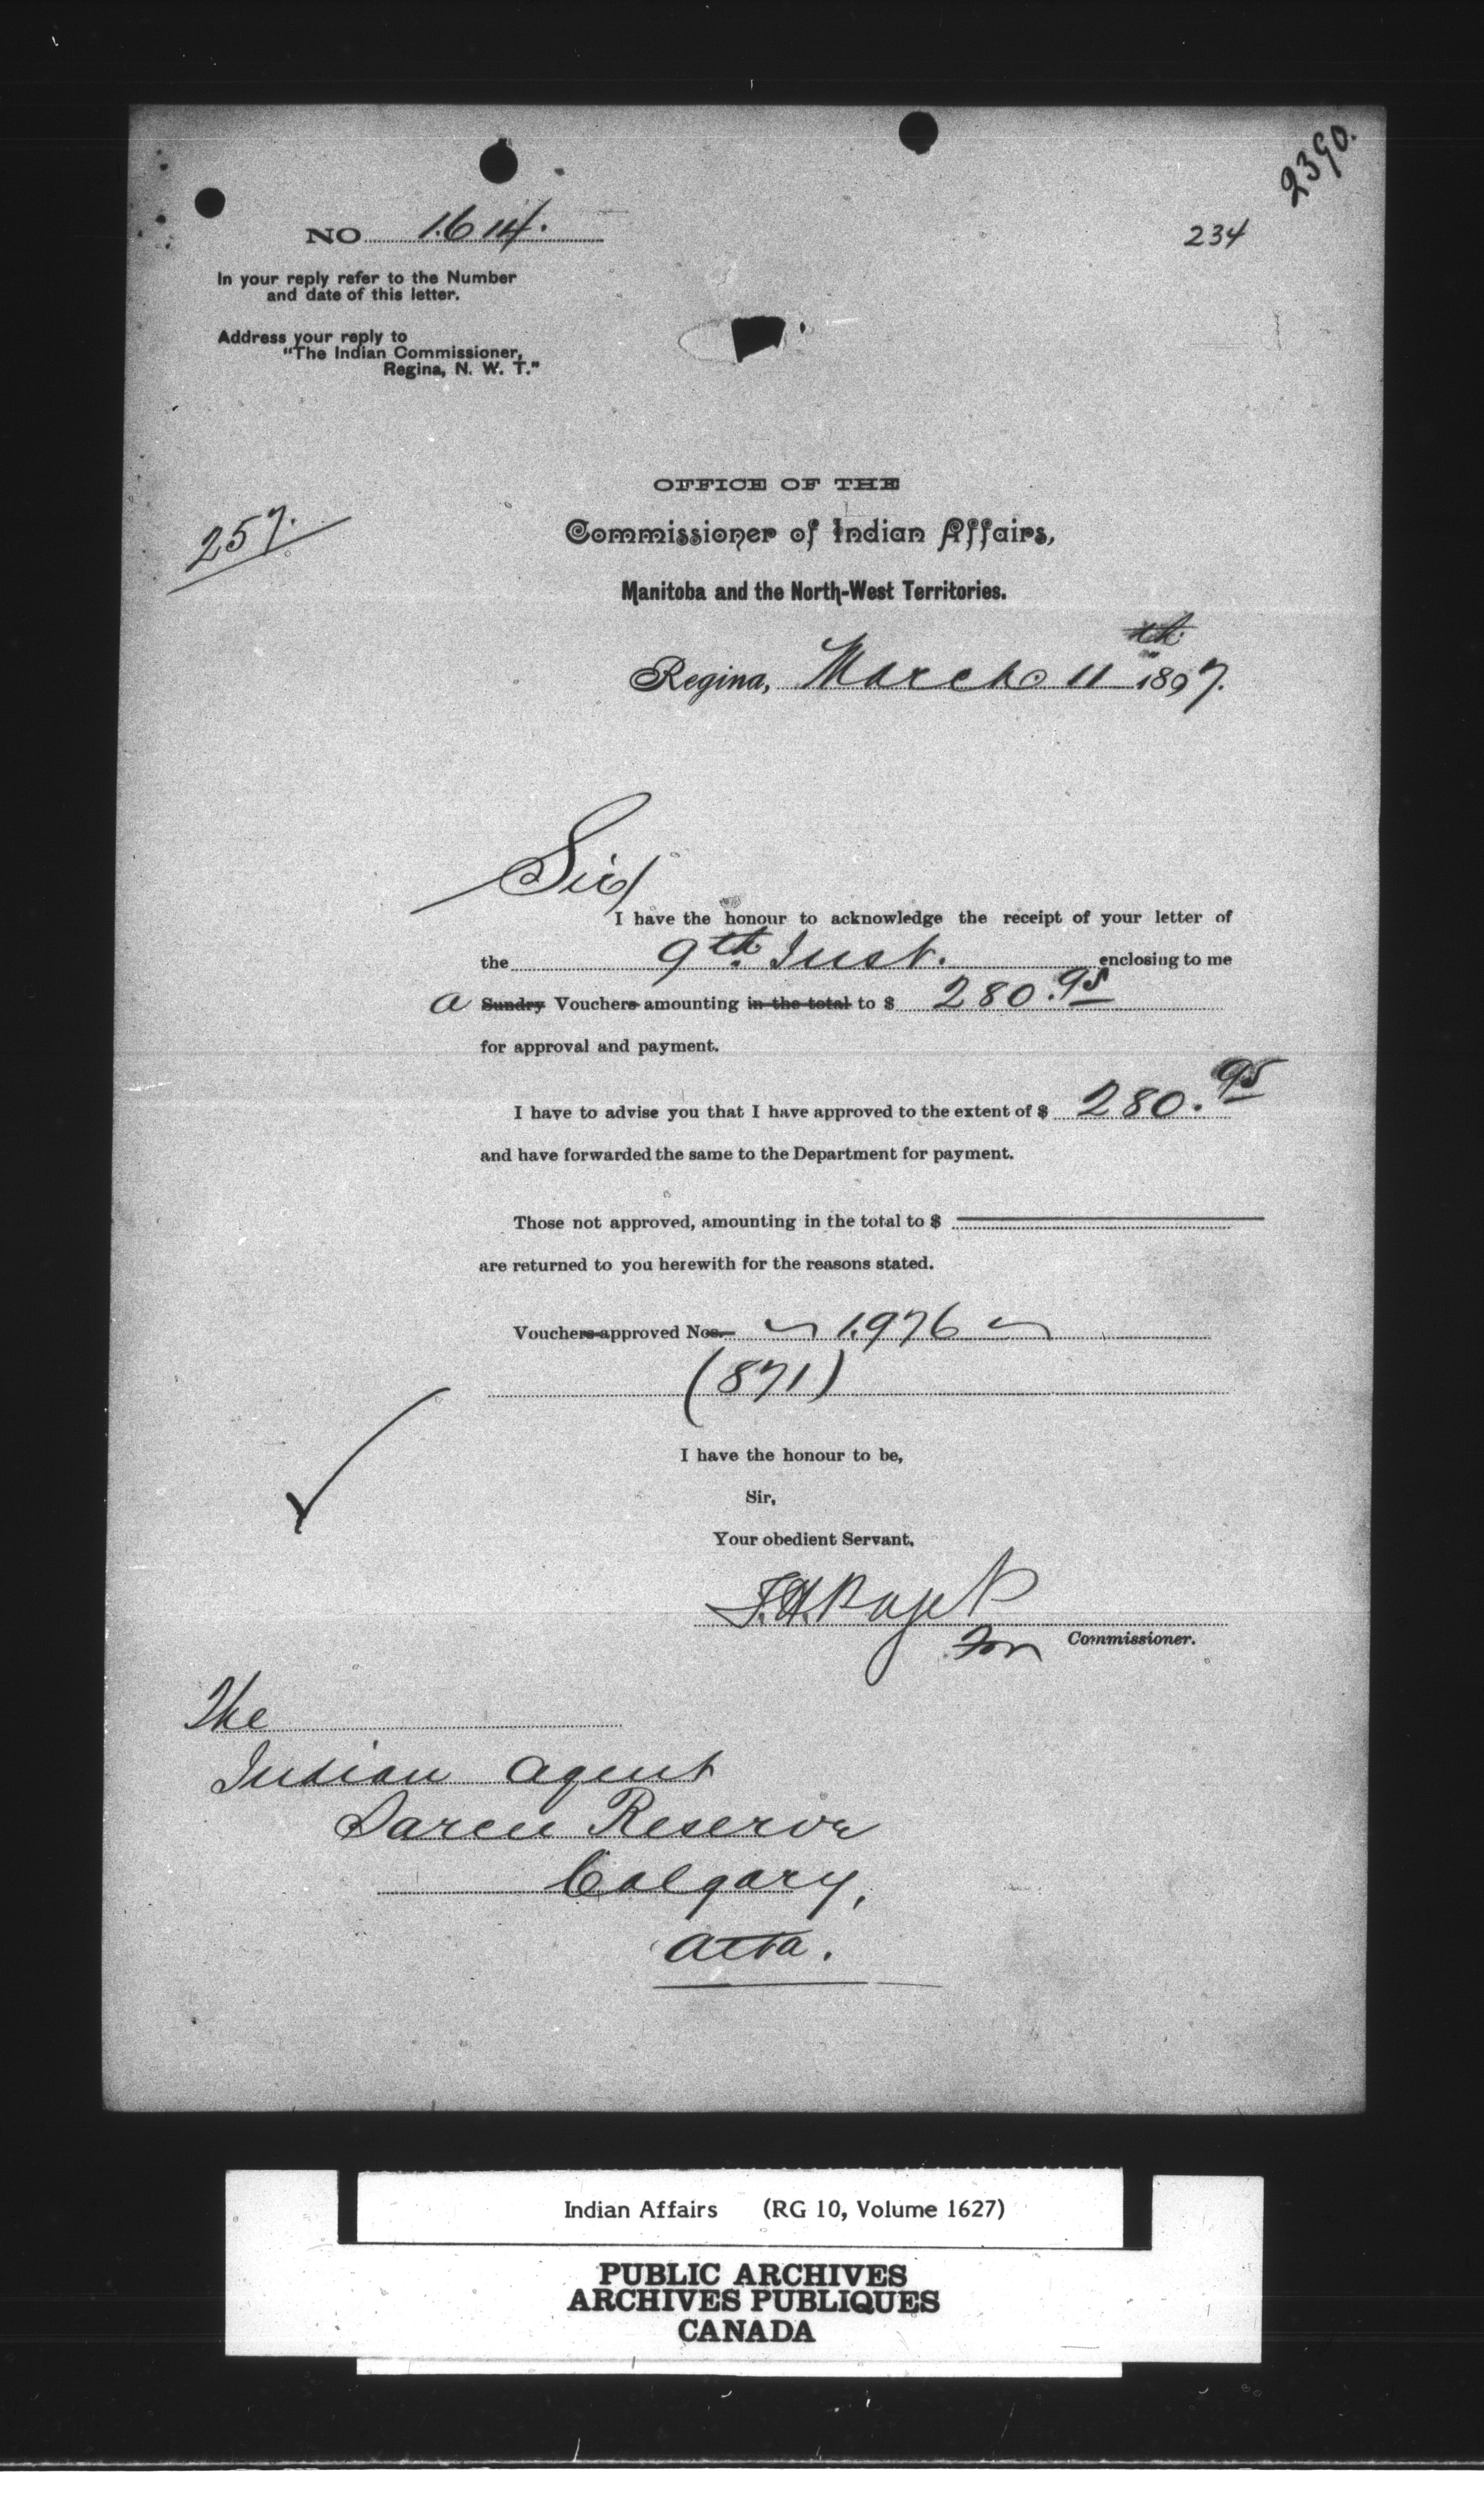 2390.
NO 1614.
234
In your reply refer to the Number
and date of this letter.
Address your reply to
"The Indian Commissioner,
Regina, N. W. T."
OFFICE OF THE
257.
Commissioner of Indian Affairs,
Manitoba and the North-West Territories.
Regina, March 11th 1897.
Sir,
I have the honour to acknowledge the receipt of your letter of
the 9th Inst. enclosing to me
a Sundry Vouchers amounting in the total to $ 280.95
for approval and payment.
I have to advise you that I have approved to the extent of $ 280.95
and have forwarded the same to the Department for payment.
Those not approved, amounting in the total to $
are returned to you herewith for the reasons stated.
Vouchers approved Nos. 1976
(871)
I have the honour to be,
Sir,
Your obedient Servant,
F.H. Paget
For Commissioner.
The
Indian Agent
Sarcee Reserve
Calgary,
Alta.
Indian Affairs (RG 10, Volume 1627)
PUBLIC ARCHIVES
ARCHIVES PUBLIQUES
CANADA